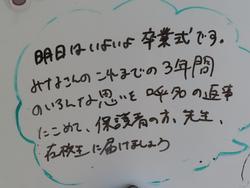 明日はいよいよ卒業式です。
みなさんのこれまでの3年間
のいろんな思いを呼名の返事
にこめて、保護者の方、先生、
在校生に届けましょう